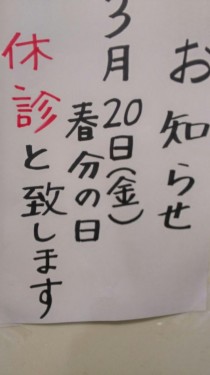 お知らせ
3月20日(金)
春分の日
休診と致します